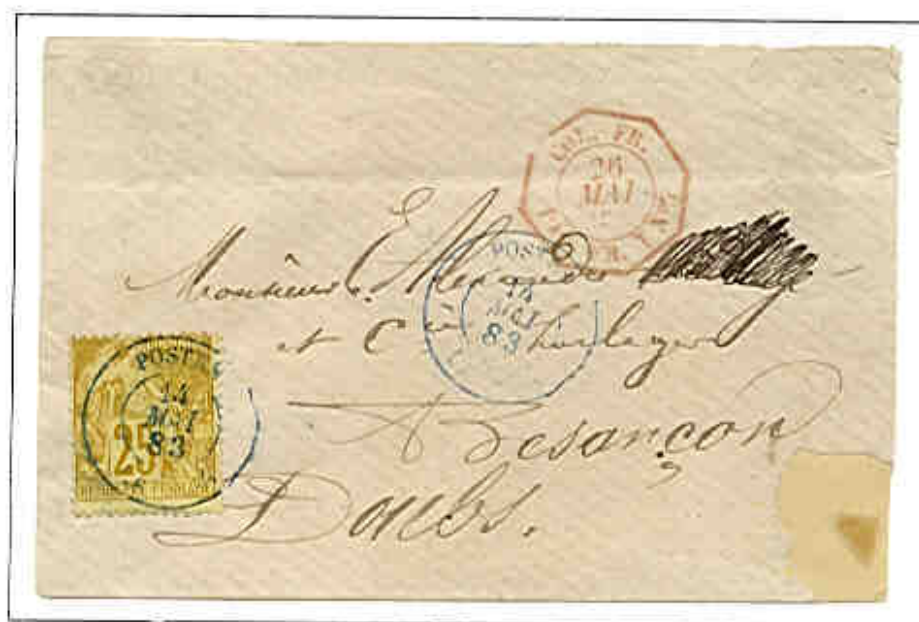 COL. FR.
26
MAI
POSTE
14
MAI
83
Monsieur Alexandre
et Cie horloger
A Besançon
Doubs.
POSTE
14
MAI
83
25